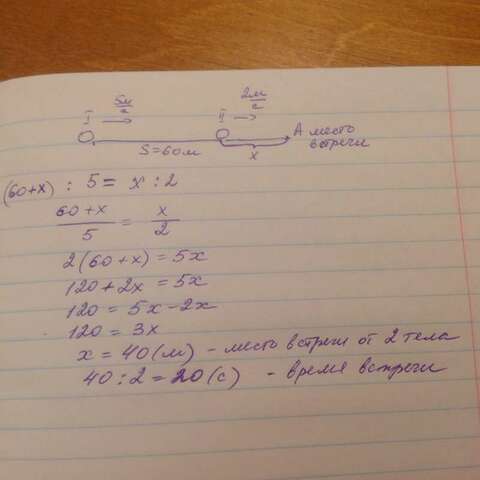 5м/с 2м/с
I II A место
встречи
S=60м x
(60+x) : 5 = x : 2
60+x/5 = x/2
2(60+x) = 5x
120+2x = 5x
120 = 5x-2x
120 = 3x
x = 40(м) - место встречи от 2 тела
40:2=20(с) - время встречи